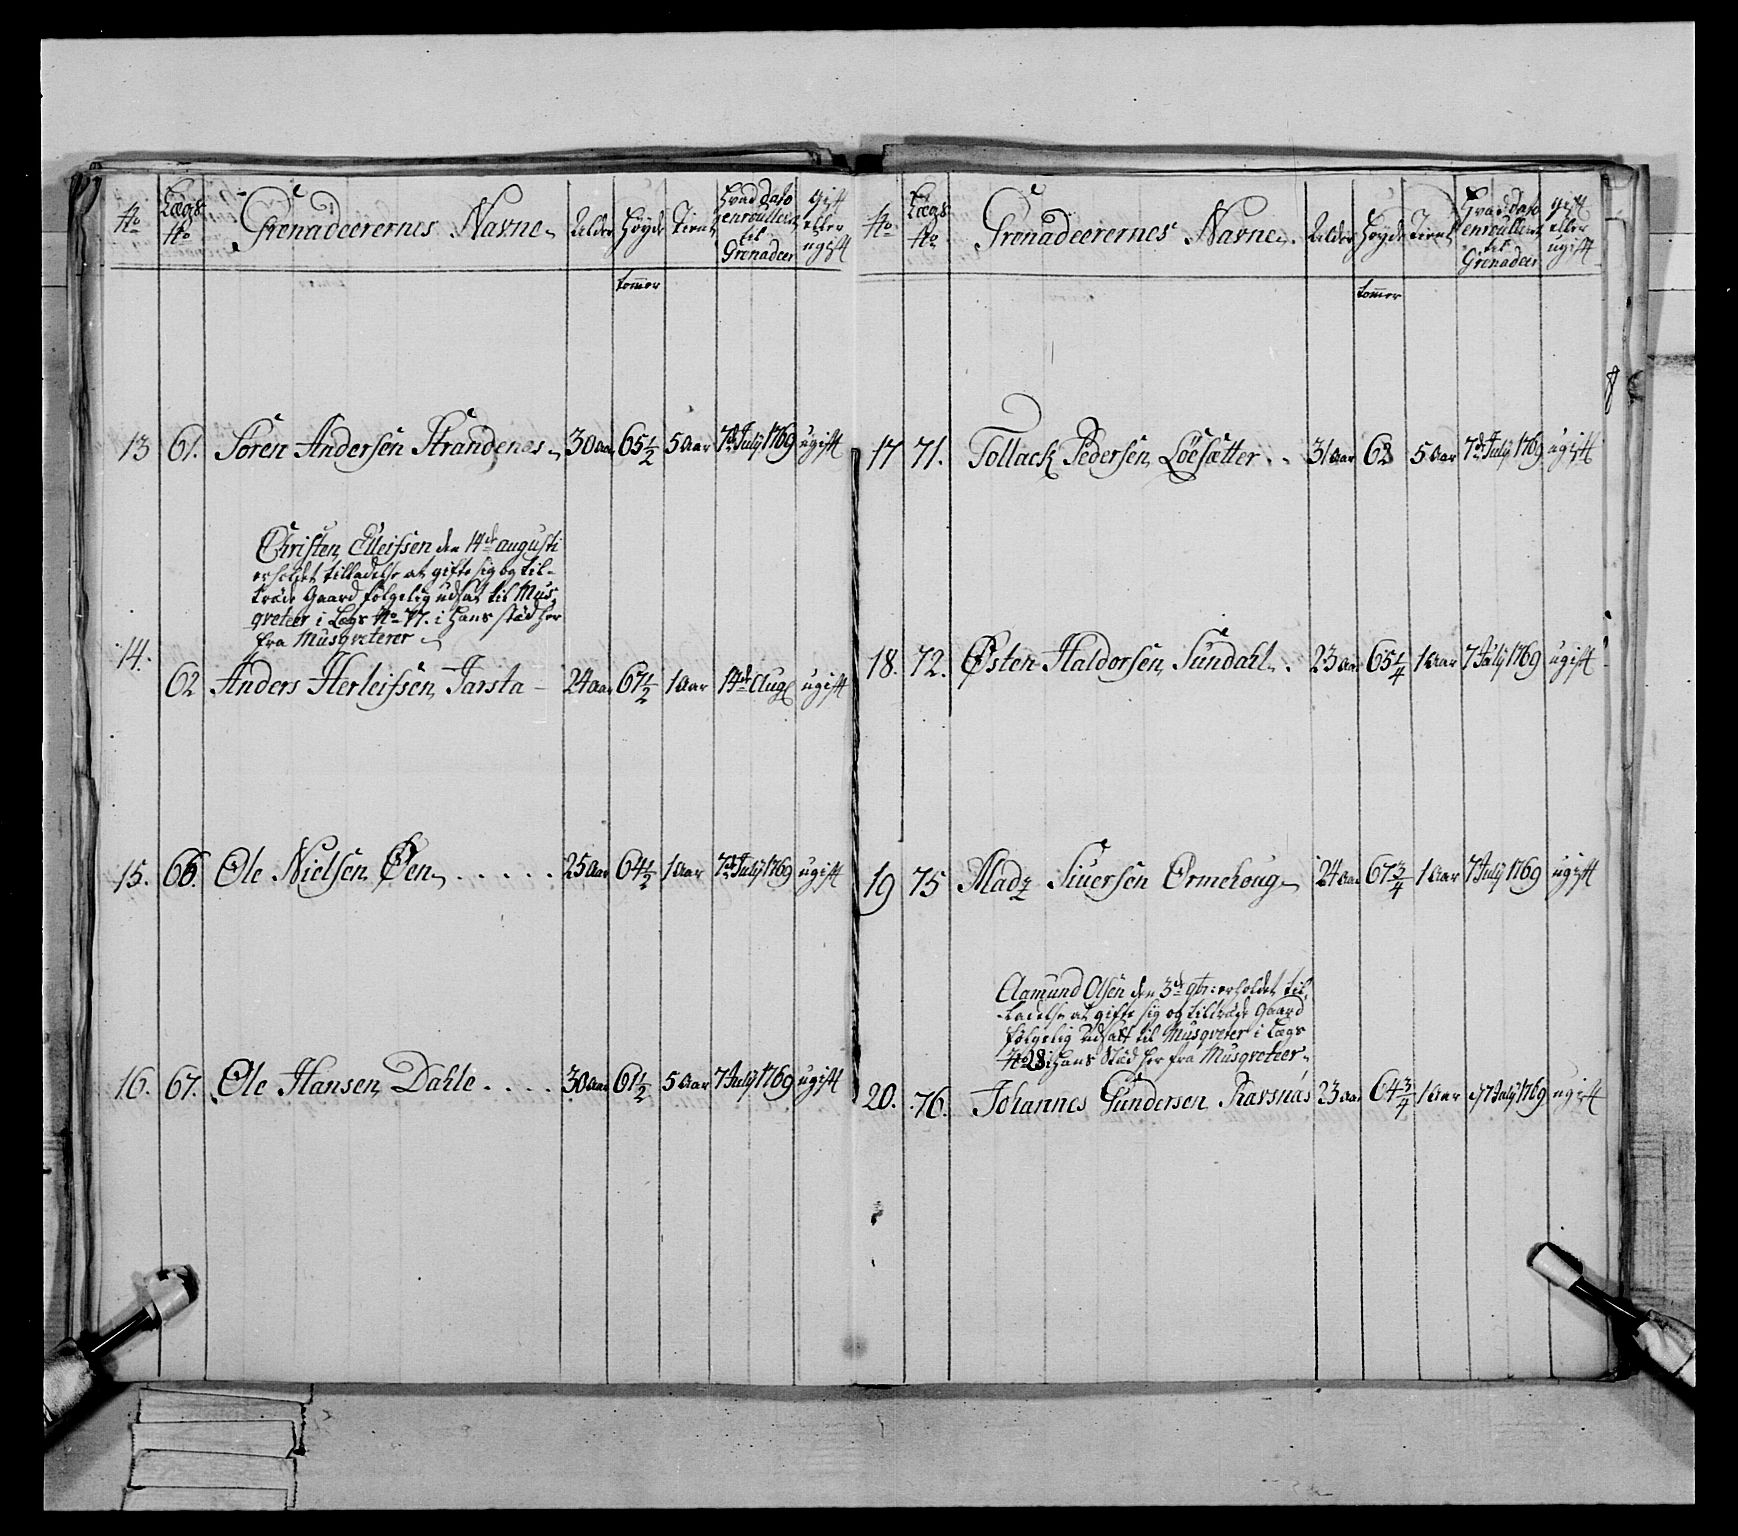 No
Lægs No
Grenadeerernes Navne
Alder
Høyde
Tient
Hvad dato enroulleret til Grenadeer
Gift eller ugift
tommer
13 61. Søren Andersen Strandenes 30 Aar 65 1/2 5 Aar 7de July 1769 ugift
Christen Elleifsen den 14de augusti
erholdet tilladelse at gifte sig og til-
træde Gaard følgelig udsat til Mus
qveteer i Lægs No 77. i hans stæd her
fra Musqveterer
14.
62 Anders Herleifsen Jarsta 24 Aar 67 1/2 1 Aar 14de Aug ugift
15. 66. Ole Nielsen Øen 25 Aar 64 1/2 1 Aar 7de July 1769 ugift
16. 67. Ole Hansen Dahle 30 Aar 61 1/2 5 Aar 7 July 1769 ugift
No
Lægs No
Grenadeerernes Navne
Alder
Høyde
Tient
Hvad dato enroulleret til Grenadeer
gift eller ugift
tommer
8
17 71. Tollack Pedersen Løesætter 31 Aar 62 5 Aar 7de July 1769 ugift
18. 72. Østen Haldorsen Sundahl 23 Aar 65 1/4 1 Aar 7 July 1769 ugift
19 75 Madz Siuersen Ormehoug 24 Aar 67 3/4 1 Aar 7 July 1769 ugift
Aamund Olsen den 3de 9br: erholdet til
ladelse at gifte sig og tiltræde Gaard
følgelig udsatt til Musqveter i Lægs
No 28 i hans Stæd her fra Musqveteer
20. 76. Johannes Gundersen Ravsnås 23 Aar 64 3/4 1 Aar 7 July 1769 ugift